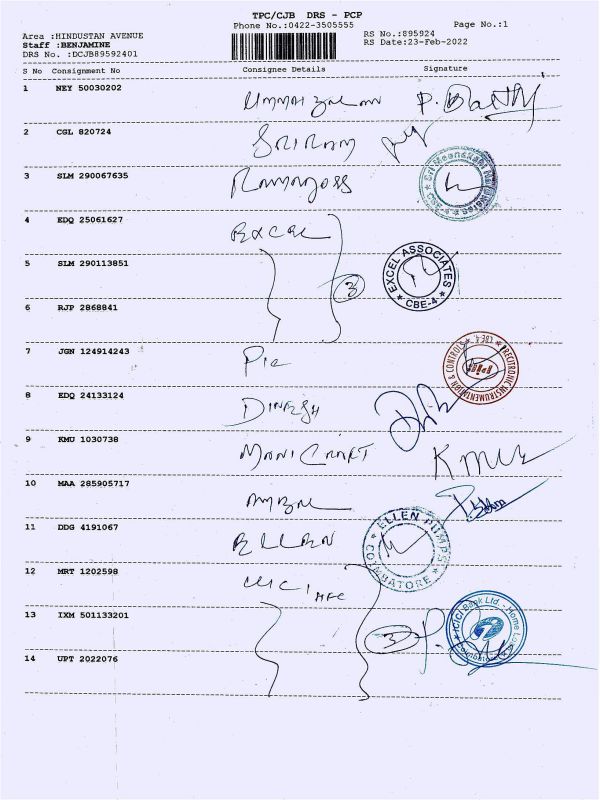 TPC/CJB DRS - PCP
Phone No.:0422-3505555 Page No.:1
Area :HINDUSTAN AVENUE RS No.:895924
Staff :BENJAMINE RS Date:23-Feb-2022
DRS No. :DCJB89592401
S No Consignment No Consignee Details Signature
1 NEY 50030202
2 CGL 820724 SRIRAM
3 SLM 290067635
4 EDQ 25061627 EXCEL
5 SLM 290113851 3 EXCEL ASSOCIATES * CBE-4 *
6 RJP 2868841
7 JGN 124914243 PRECITRONIC INSTRUMENTATION & CONTROLS * CBE-4 *
8 EDQ 24133124 DINESH
9 KMU 1030738
10 MAA 285905717
11 DDG 4191067 ELLEN ELLEN PUMPS COIMBATORE
12 MRT 1202598 ICICI HFC
13 IXM 501133201 3 ICICI Bank Ltd. - Home Loan Coimbatore
14 UPT 2022076